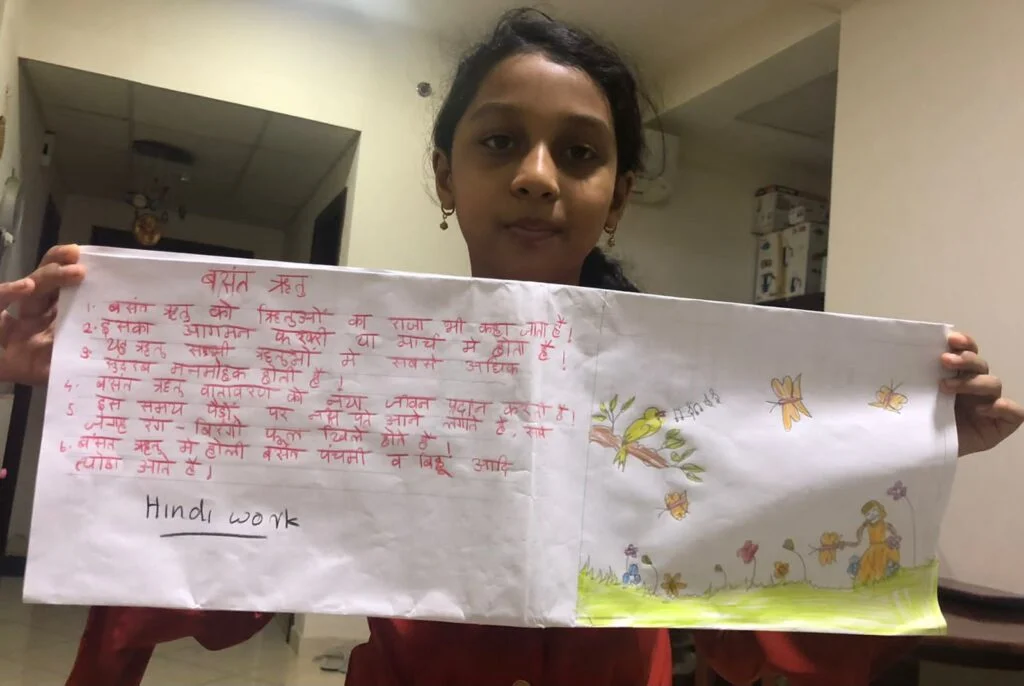 बसंत ऋतु
1. बसंत ऋतु को ऋितुओं का राजा भी कहा जाता है!
2. इसका आगमन फरवरी या मार्च मे होता है!
3. यह ऋतु सभी ऋतुओ मे सबसे अधिक
सुंदरब मनमोहक होता है!
4. बसंत ऋतु वातावरण को नया जीवन प्रदान करता है।
5 इस समय पेड़ो पर नए पते आने लगते है, सब
जगह रंग-बिरंगी फूल खिले होते है!
6. बसंत ऋतू मे होली बसंत पंचमी व बिहू आदि
त्योहा आते है।
Hindi work